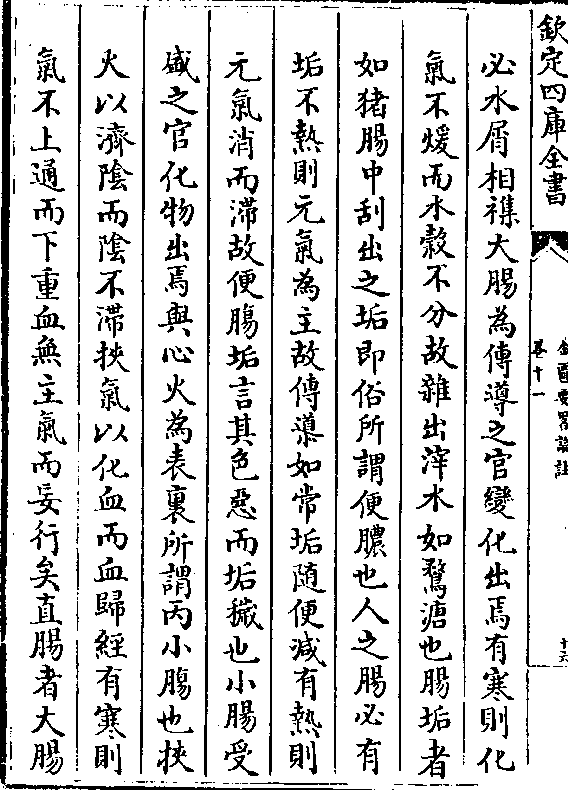 欽定四庫全書
金匱要畧論註
卷十一
十六
必水屑相襍大腸為傳導之官變化出焉有寒則化
氣不煖而水穀不分故雜出滓水如鶩溏也腸垢者
如猪腸中刮出之垢即俗所謂便膿也人之腸必有
垢不熱則元氣為主故傳導如常垢随便減有熱則
元氣消而滞故便腸垢言其色惡而垢穢也小腸受
盛之官化物出焉與心火為表裏所謂丙小腸也挾
火以濟陰而陰不滯挾氣以化血而血歸經有寒則
氣不上通而下重血無主氣而妄行矣直腸者大腸